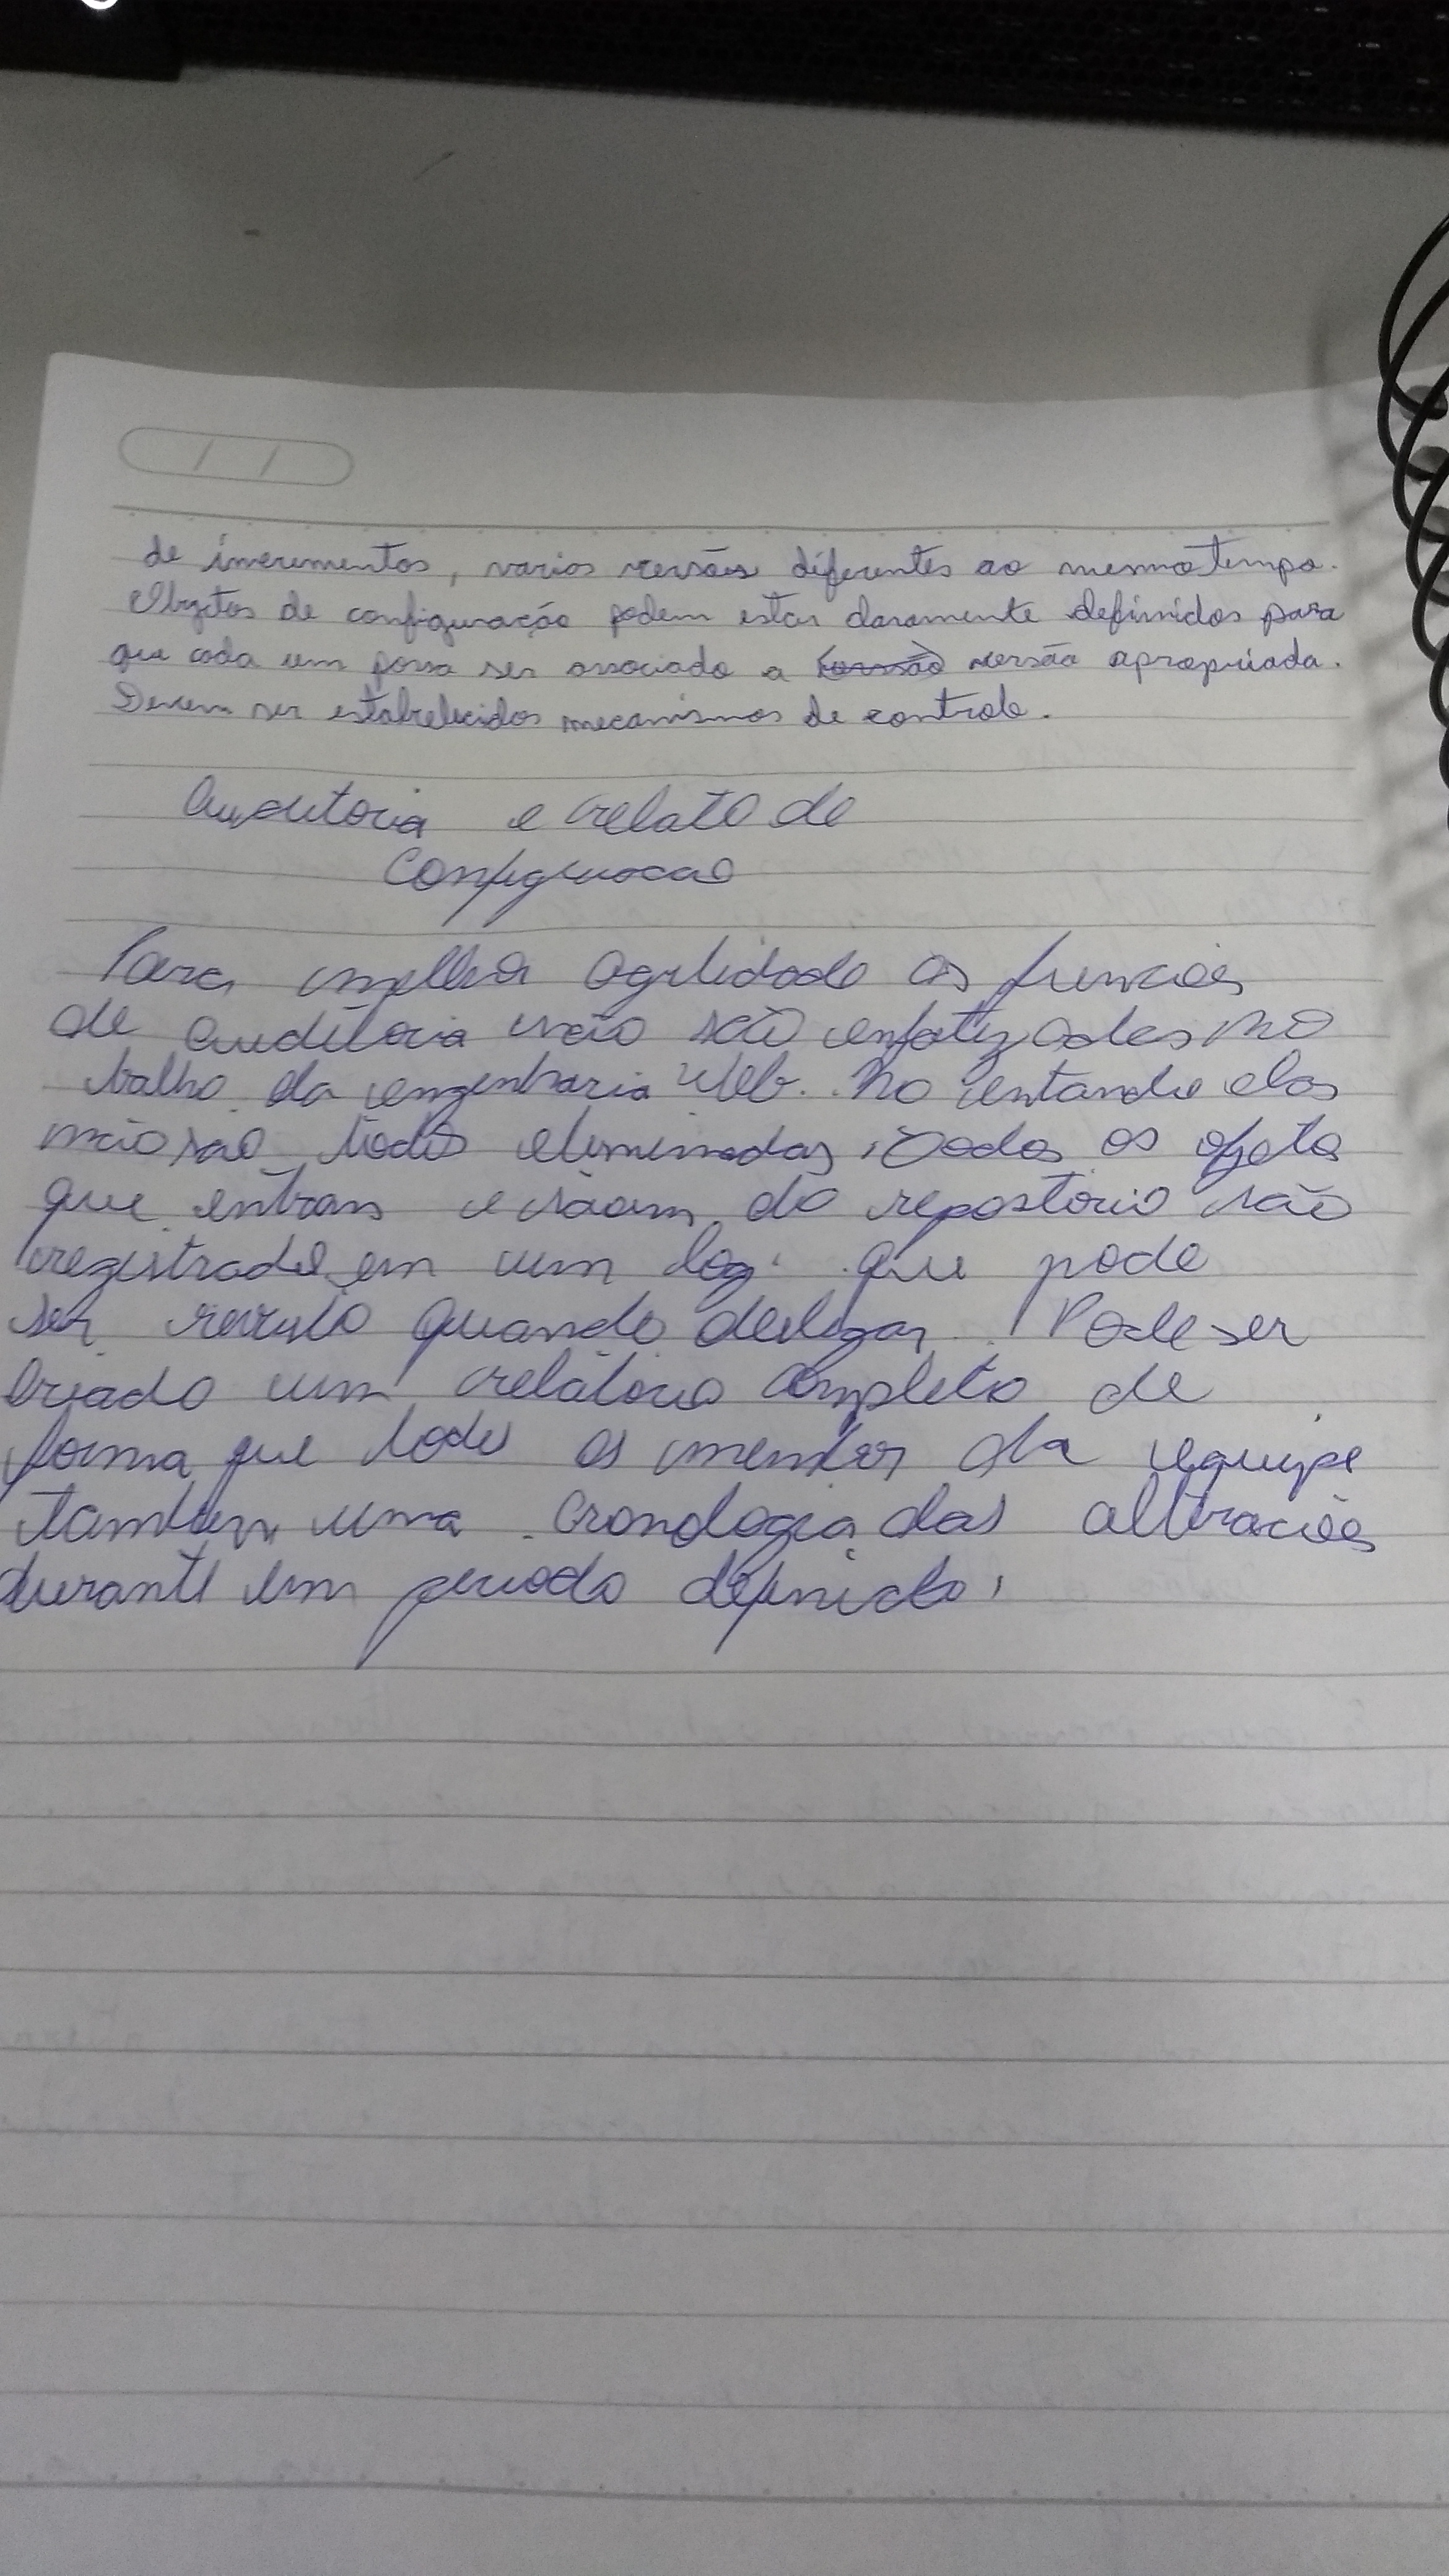 de incrementos, varios versões diferentes ao mesmo tempo.
Objetos de configuração podem estar claramente definidos para
que cada um possa ser associado a versão apropriada.
Devem ser estabelecidos mecanismos de controle.
Auditoria e relato de
Configuracao
Para melhor agilidade as funcões
de auditoria não são enfatizadas no
balho da engenharia Web. No entando elas
não sao todas eliminadas, Todos os objeto
que entram e sãom do repostorio são
registrado em um log que pode
ser revisto quando desligar. Pode ser
criado um relátorio completo de
forma que todos os membros da equipe
tambem uma cronologia das alteracões
durante um periodo definido.